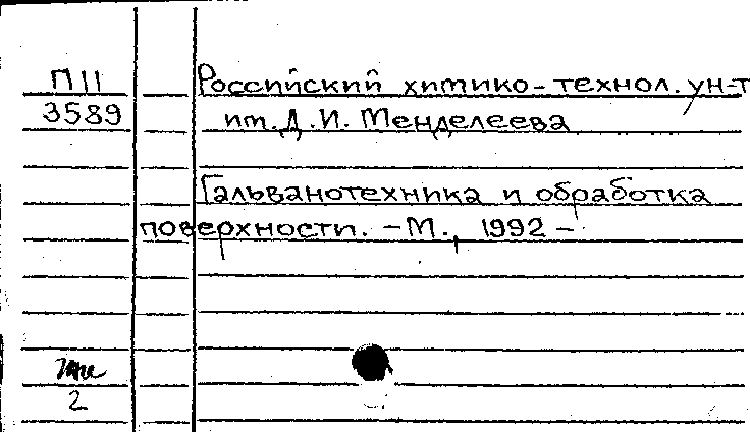 П11
3589
Российский химико-технол. ун-т
им. Д.И. Менделеева
Гальванотехника и обработка
поверхности. - М., 1992 -
2